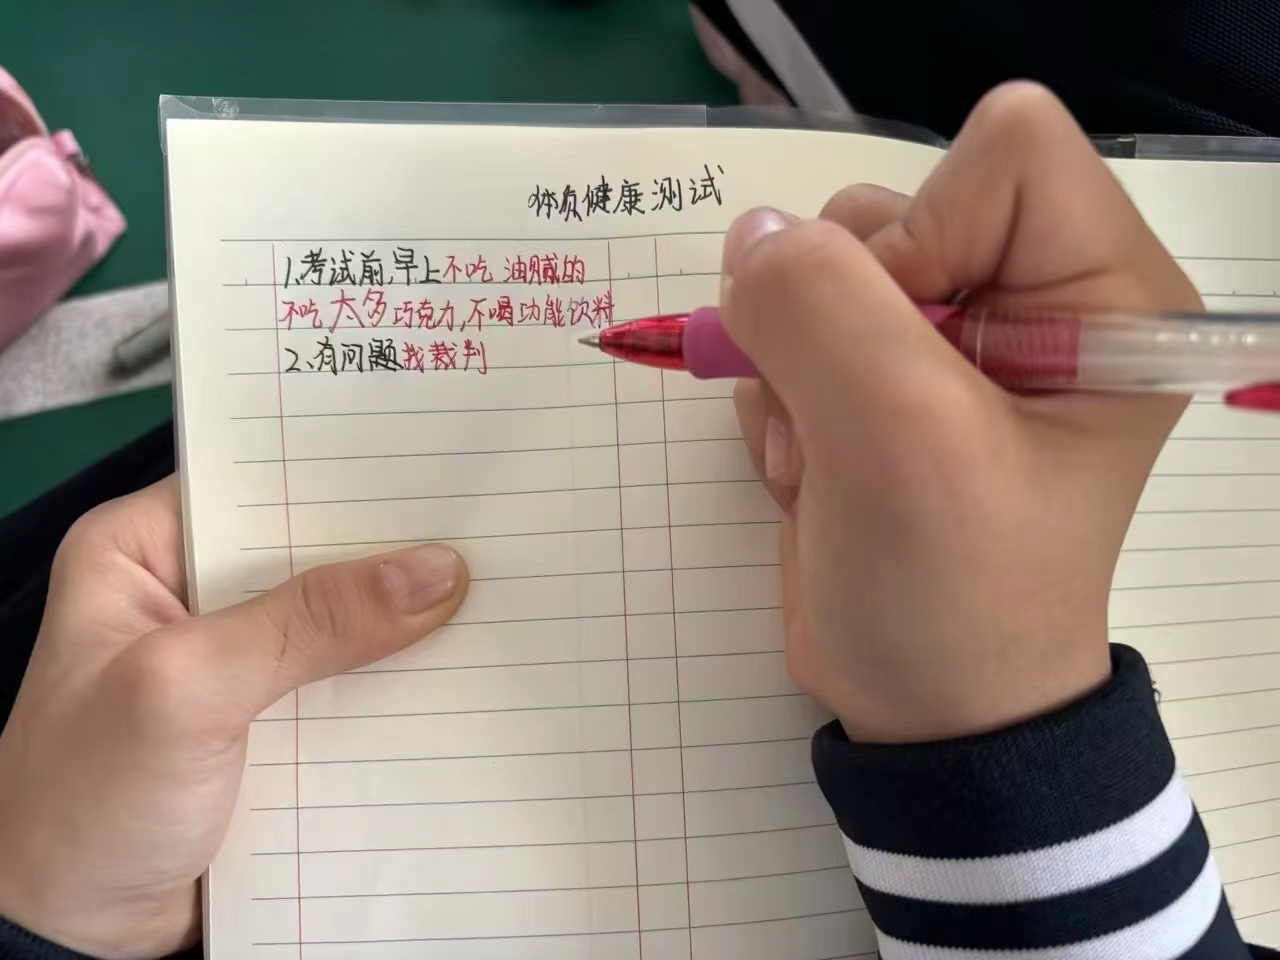 体质健康测试
1.考试前,早上不吃油腻的
不吃太多巧克力,不喝功能饮料
2、有问题找裁判